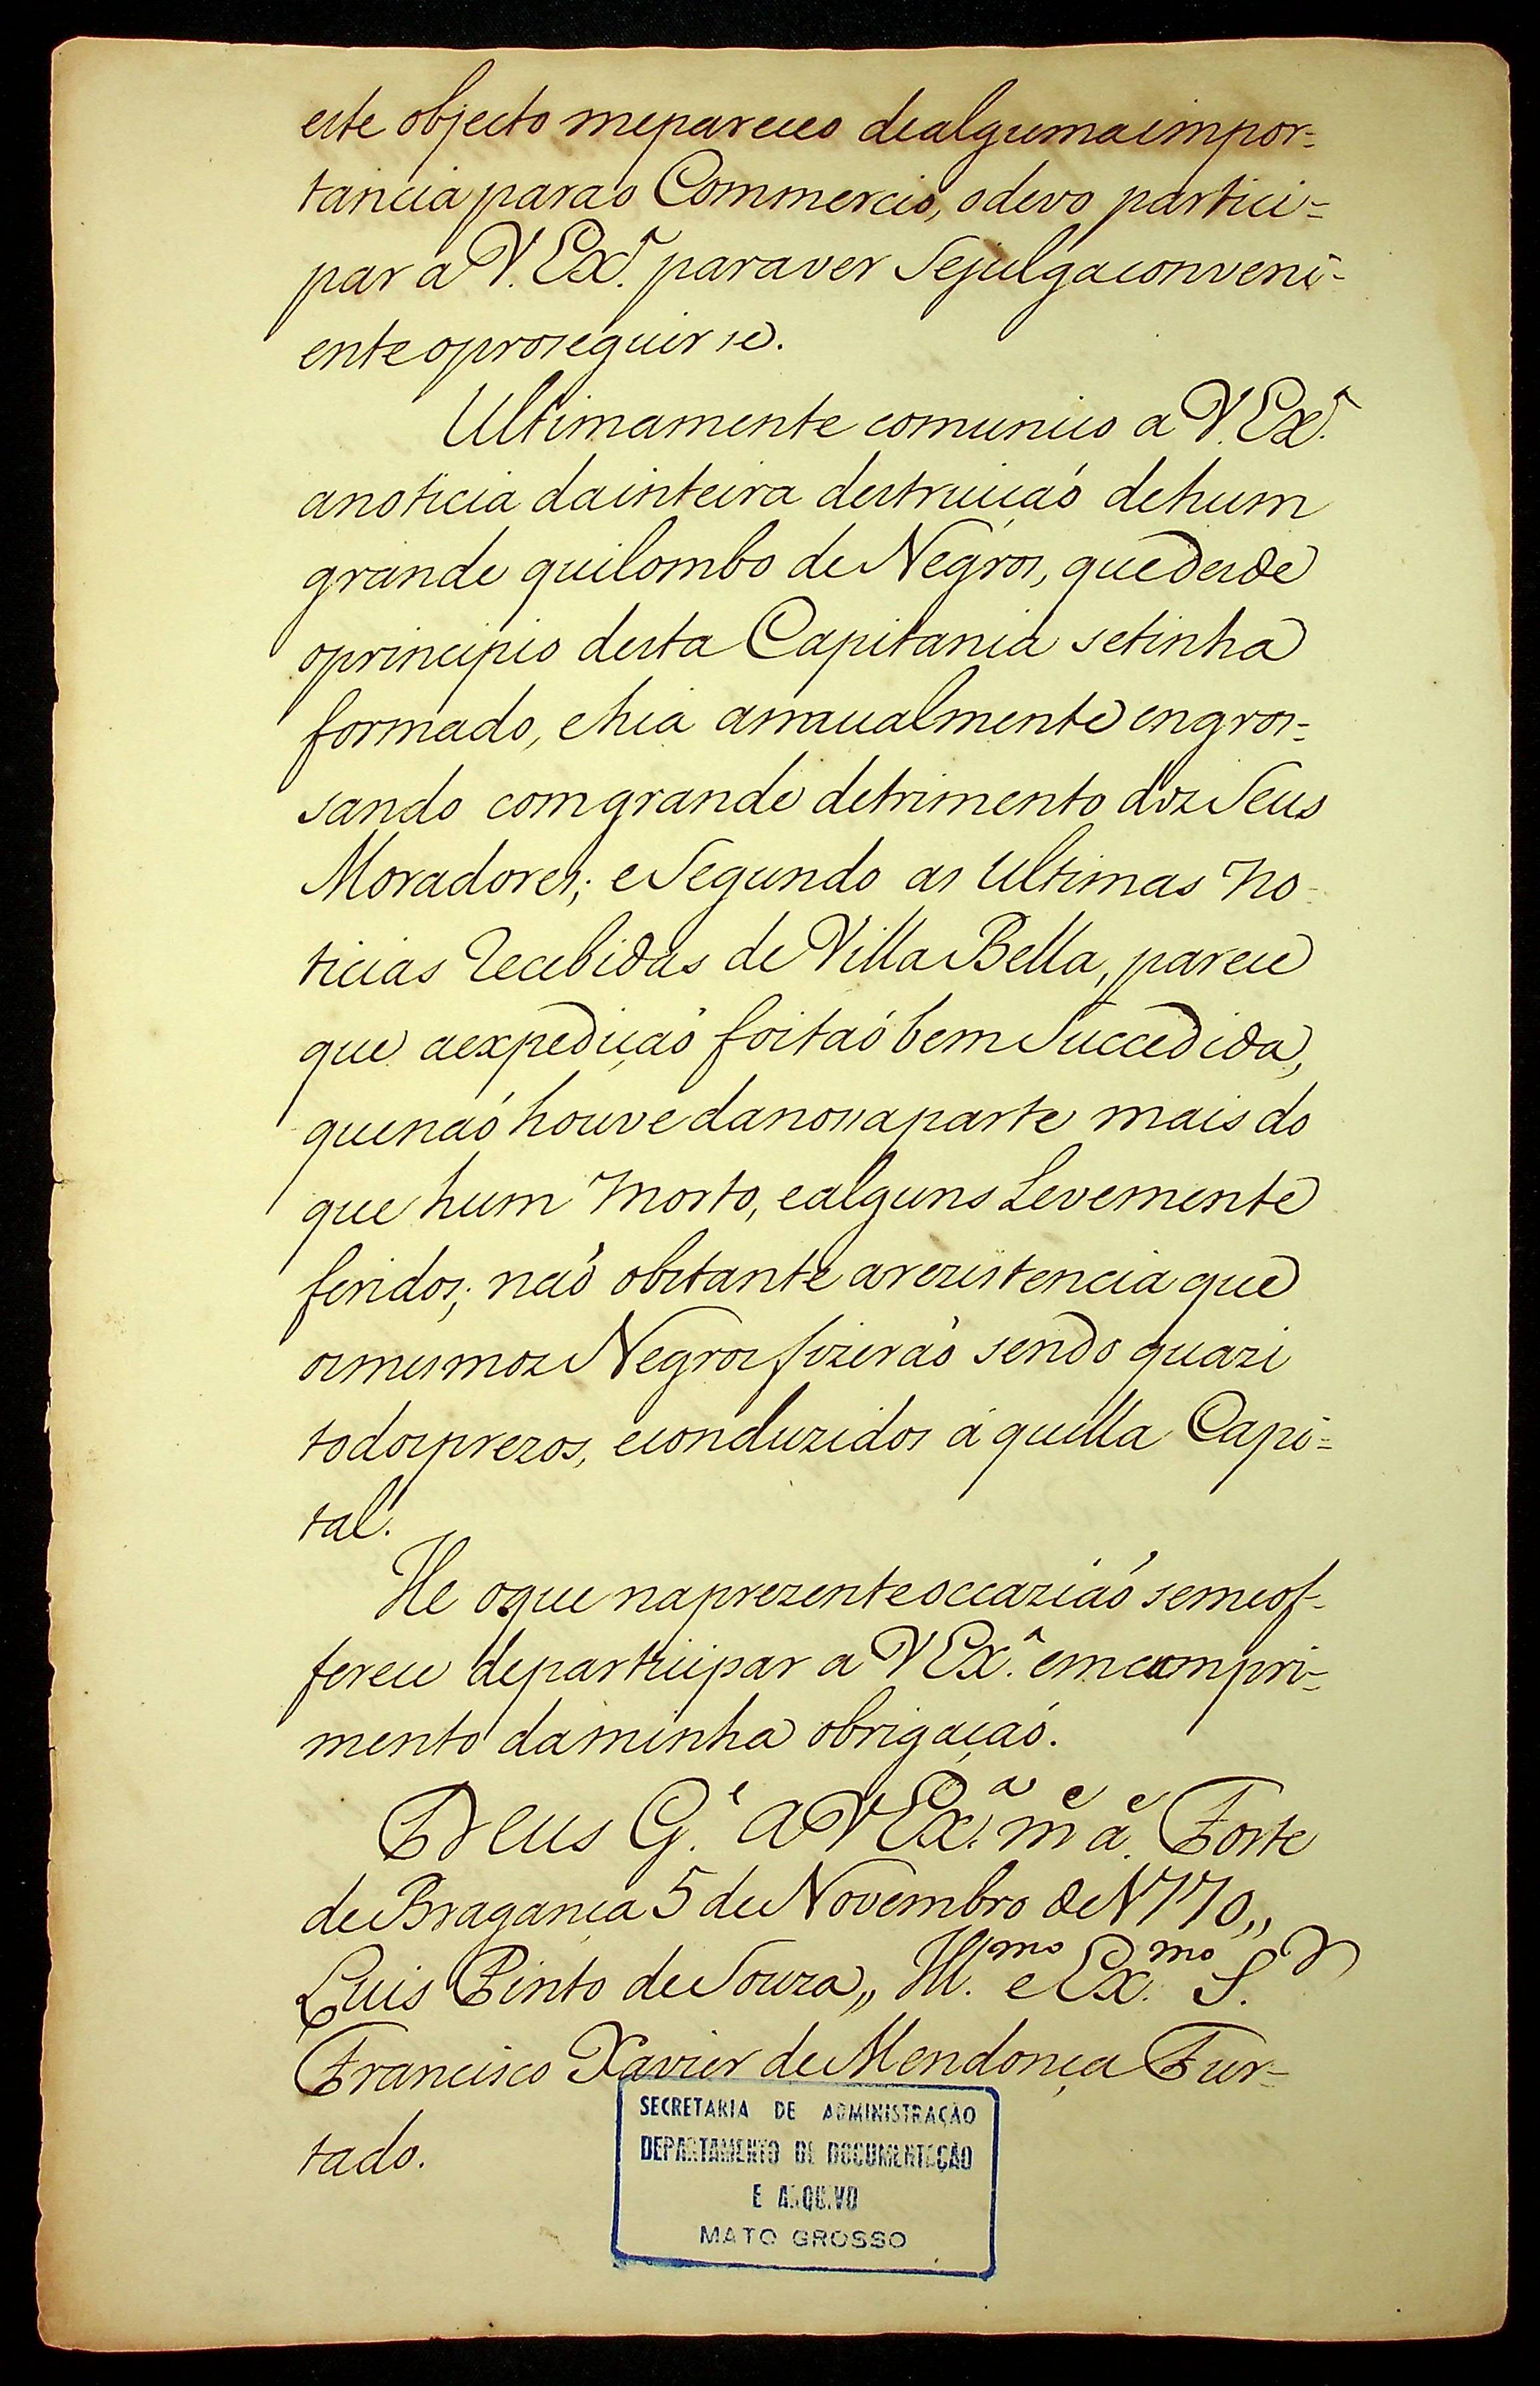 este objecto mepareceo dealgumaimpor=
tancia parao Commercio, odevo partici=
par a V. Exª. paraver sejulgaconveni=
ente oproseguirse.
Ultimamente comunico a V. Exª.
anoticia dainteira destruiçaó dehum
grande quilombo de Negros, quedesde
oprincipio desta Capitania setinha
formado, ehia annualmente engros=
sando comgrande detrimento dos Seus
Moradores; eSegundo as ultimas no-
ticias recebidas de Villa Bella, parece
que aexpediçaó foitaó bem Succedida,
quenaó houve danossaparte mais do
que hum morto, ealguns Levemente
feridos; naó obstante arezistencia que
osmesmos Negros fizeraó sendo quazi
todosprezos, econduzidos áquella Capi=
tal.
He oque naprezenteoccaziaó semeof-
ferece departicipar a V Exª. emcompri-
mento daminha obrigaçaó.
Deus G.e a V Ex.a m.e a.e Forte
de Bragança 5 de Novembro de 1770,,
Luis Pinto de Souza,, Ill.mo e Ex.mo S.r
Francisco Xavier de Mendonça Fur-
tado.
SECRETARIA DE ADMINISTRAÇÃO
DEPARTAMENTO DE DOCUMENTAÇÃO
E ARQUIVO
MATO GROSSO